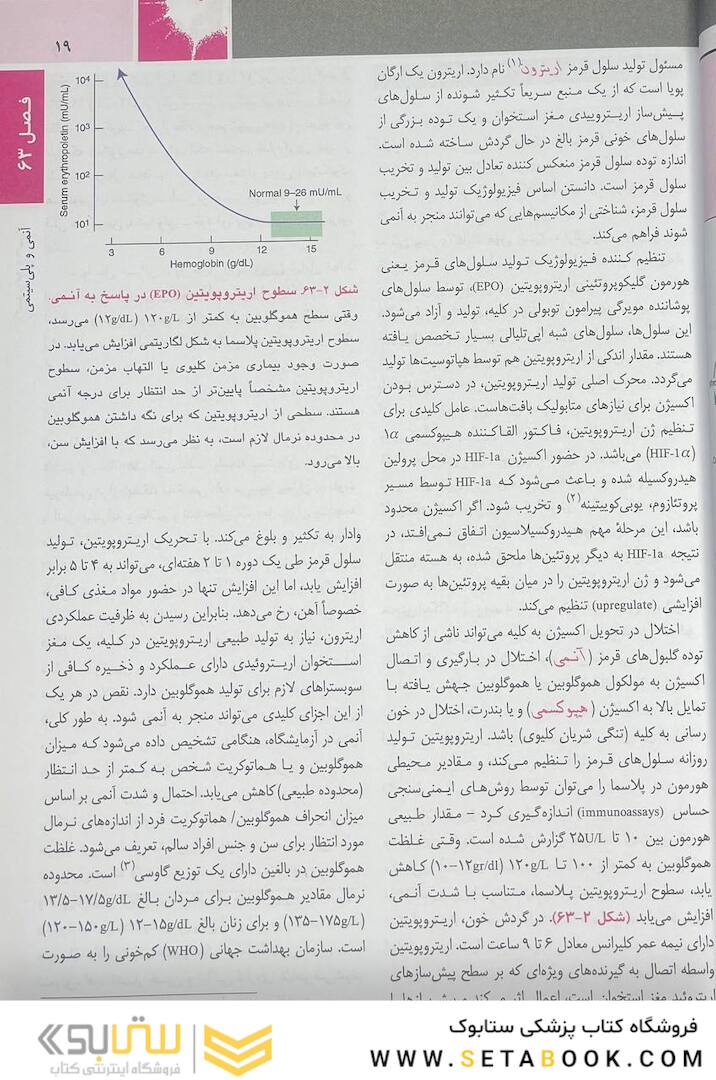 ۱۹
فصل ۶۳
آنمی و پلی‌سیتمی
مسئول تولید سلول قرمز اریترون(۱) نام دارد. اریترون یک ارگان
پویا است که از یک منبع سریعاً تکثیر شونده از سلول‌های
پیش‌ساز اریتروییدی مغز استخوان و یک توده بزرگی از
سلول‌های خونی قرمز بالغ در حال گردش ساخته شده است.
اندازه توده سلول قرمز منعکس کننده تعادل بین تولید و تخریب
سلول قرمز است. دانستن اساس فیزیولوژیک تولید و تخریب
سلول قرمز، شناختی از مکانیسم‌هایی که می‌توانند منجر به آنمی
شوند فراهم می‌کند.
تنظیم کننده فیزیولوژیک تولید سلول‌های قرمز یعنی
هورمون گلیکوپروتئینی اریتروپویتین (EPO)، توسط سلول‌های
پوشاننده مویرگی پیرامون توبولی در کلیه، تولید و آزاد می‌شود.
این سلول‌ها، سلول‌های شبه اپی‌تلیالی بسیار تخصص یافته
هستند. مقدار اندکی از اریتروپویتین هم توسط هپاتوسیت‌ها تولید
می‌گردد. محرک اصلی تولید اریتروپویتین، در دسترس بودن
اکسیژن برای نیازهای متابولیک بافت‌هاست. عامل کلیدی برای
تنظیم ژن اریتروپویتین، فاکتور القاکننده هیپوکسمی ۱α
(HIF-1α) می‌باشد. در حضور اکسیژن HIF-1a در محل پرولین
هیدروکسیله شده و باعث می‌شود که HIF-1a توسط مسیر
پروتئازوم، یوبی‌کوییتینه(۲) و تخریب شود. اگر اکسیژن محدود
باشد، این مرحلهٔ مهم هیدروکسیلاسیون اتفاق نمی‌افتد، در
نتیجه HIF-1a به دیگر پروتئین‌ها ملحق شده، به هسته منتقل
می‌شود و ژن اریتروپویتین را در میان بقیه پروتئین‌ها به صورت
افزایشی (upregulate) تنظیم می‌کند.
اختلال در تحویل اکسیژن به کلیه می‌تواند ناشی از کاهش
توده گلبول‌های قرمز (آنمی)، اختلال در بارگیری و اتصال
اکسیژن به مولکول هموگلوبین یا هموگلوبین جهش یافته با
تمایل بالا به اکسیژن (هیپوکسمی) و یا بندرت، اختلال در خون
رسانی به کلیه (تنگی شریان کلیوی) باشد. اریتروپویتین تولید
روزانه سلول‌های قرمز را تنظیم می‌کند، و مقادیر محیطی
هورمون در پلاسما را می‌توان توسط روش‌های ایمنی‌سنجی
حساس (immunoassays) اندازه‌گیری کرد – مقدار طبیعی
هورمون بین ۱۰ تا ۲۵U/L گزارش شده است. وقتی غلظت
هموگلوبین به کمتر از ۱۰۰ تا ۱۲۰g/L (۱۰–۱۲gr/dl) کاهش
یابد، سطوح اریتروپویتین پلاسما، متناسب با شدت آنمی،
افزایش می‌یابد (شکل ۲-۶۳). در گردش خون، اریتروپویتین
دارای نیمه عمر کلیرانس معادل ۶ تا ۹ ساعت است. اریتروپویتین
واسطه اتصال به گیرنده‌های ویژه‌ای که بر سطح پیش‌سازهای
اریتروئید مغز استخوان است، اعمال اثر می‌کند
Serum erythropoietin (mU/mL)
10⁴
10³
10²
10¹
Normal 9–26 mU/mL
3 6 9 12 15
Hemoglobin (g/dL)
شکل ۲-۶۳. سطوح اریتروپویتین (EPO) در پاسخ به آنمی.
وقتی سطح هموگلوبین به کمتر از ۱۲۰g/L (۱۲g/dL) می‌رسد،
سطوح اریتروپویتین پلاسما به شکل لگاریتمی افزایش می‌یابد. در
صورت وجود بیماری مزمن کلیوی یا التهاب مزمن، سطوح
اریتروپویتین مشخصاً پایین‌تر از حد انتظار برای درجه آنمی
هستند. سطحی از اریتروپویتین که برای نگه داشتن هموگلوبین
در محدوده نرمال لازم است، به نظر می‌رسد که با افزایش سن،
بالا می‌رود.
وادار به تکثیر و بلوغ می‌کند. با تحریک اریتروپویتین، تولید
سلول قرمز طی یک دوره ۱ تا ۲ هفته‌ای، می‌تواند به ۴ تا ۵ برابر
افزایش یابد، اما این افزایش تنها در حضور مواد مغذی کافی،
خصوصاً آهن، رخ می‌دهد. بنابراین رسیدن به ظرفیت عملکردی
اریترون، نیاز به تولید طبیعی اریتروپویتین در کلیه، یک مغز
استخوان اریتروئیدی دارای عملکرد و ذخیره کافی از
سوبستراهای لازم برای تولید هموگلوبین دارد. نقص در هر یک
از این اجزای کلیدی می‌تواند منجر به آنمی شود. به طور کلی،
آنمی در آزمایشگاه، هنگامی تشخیص داده می‌شود که میزان
هموگلوبین و یا هماتوکریت شخص به کمتر از حد انتظار
(محدوده طبیعی) کاهش می‌یابد. احتمال و شدت آنمی بر اساس
میزان انحراف هموگلوبین/ هماتوکریت فرد از اندازه‌های نرمال
مورد انتظار برای سن و جنس افراد سالم، تعریف می‌شود. غلظت
هموگلوبین در بالغین دارای یک توزیع گاوسی(۳) است. محدوده
نرمال مقادیر هموگلوبین برای مردان بالغ ۱۳/۵–۱۷/۵g/dL
(۱۳۵–۱۷۵g/L) و برای زنان بالغ ۱۲–۱۵g/dL (۱۲۰–۱۵۰g/L)
است. سازمان بهداشت جهانی (WHO) کم‌خونی را به صورت
فروشگاه کتاب پزشکی ستابوک
WWW.SETABOOK.COM
ستابوک
فروشگاه اینترنتی کتاب